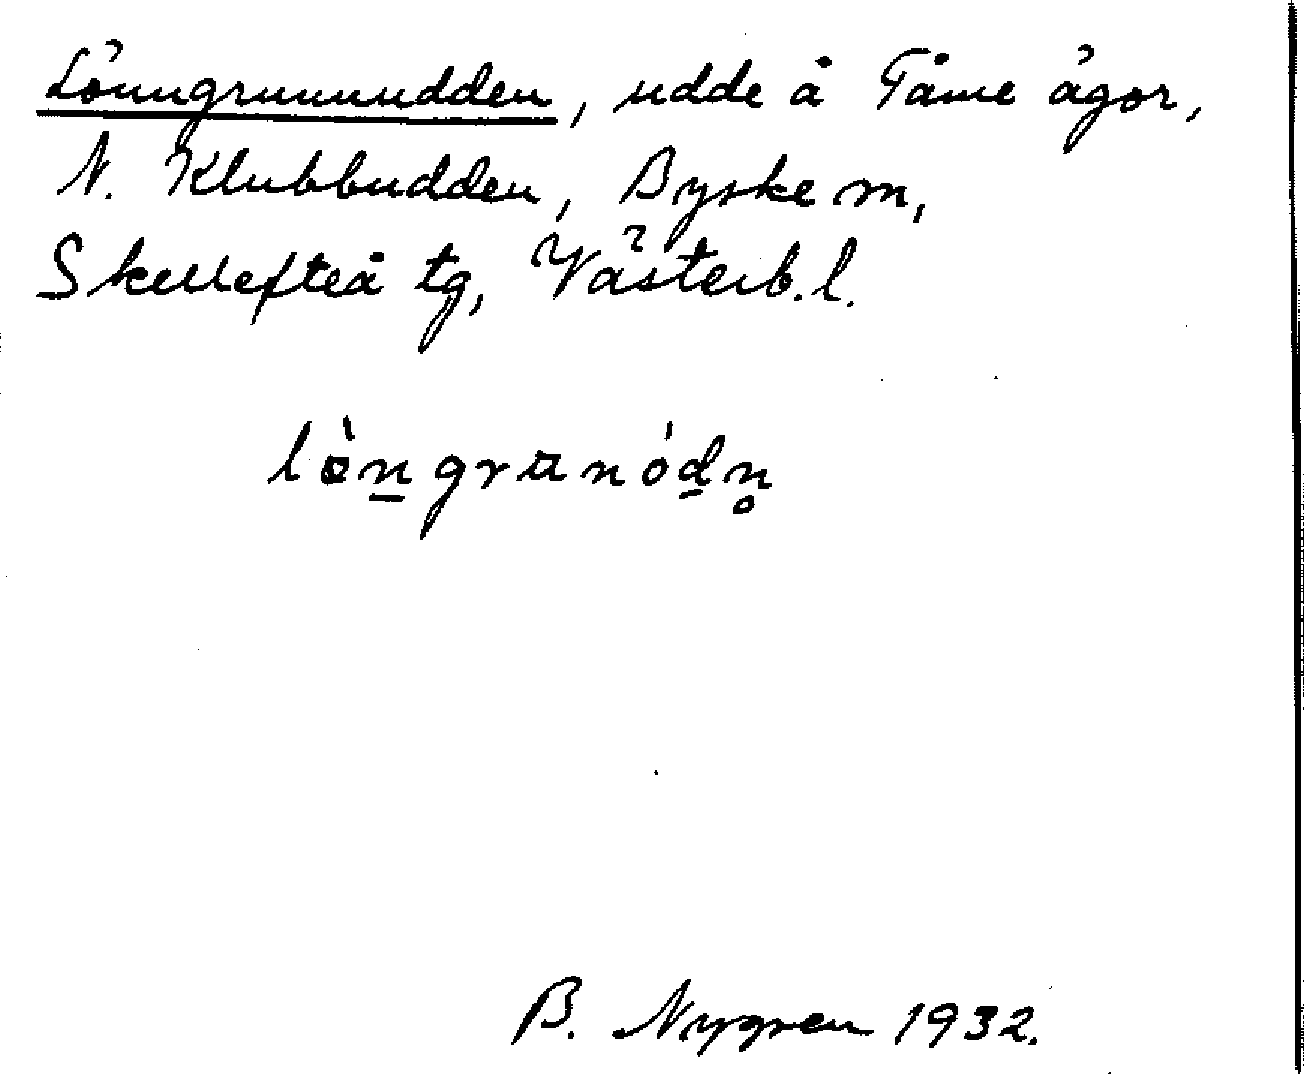 Lönngrunnudden, udde å Tåme ägor,
N. Klubbudden, Byske sn,
Skellefteå tg, Västerb. l.
B. Nygren 1932.